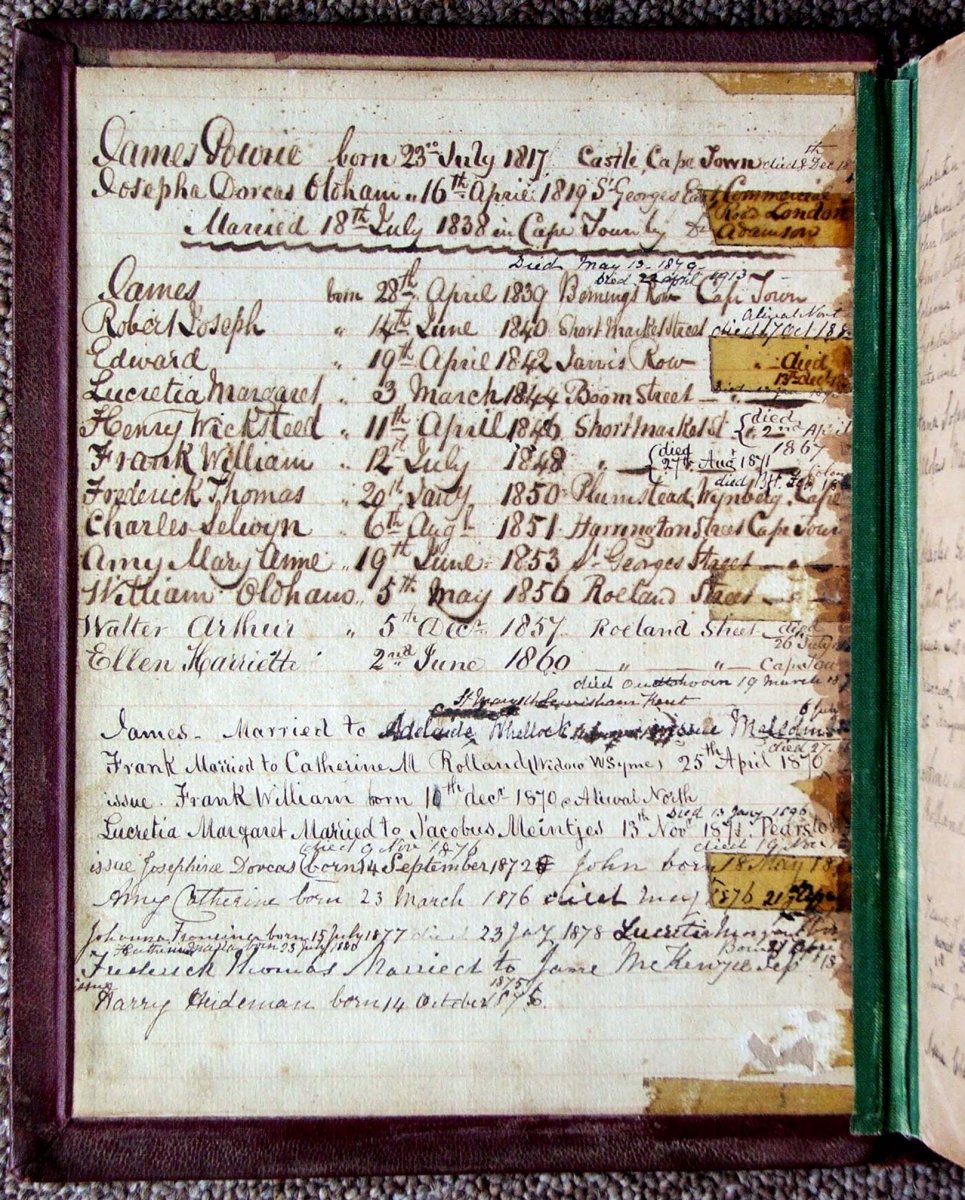 James Powrie born 23rd July 1817. Castle, Cape Town died 8th Dec 18
Josepha Dorcas Oldham „ 16th April 1819 St Georges East Commercial
Road London
Married 18th July 1838 in Cape Town by Dr Adamson
Died May 13. 1879
died 22 April 1913
James born 28th April 1839 Bernings Row Cape Town
Robert Joseph „ 14th June 1840 Short Market Street died 17 Oct 188
Aliwal Nort
Edward „ 19th April 1842 Jarvis Row died
Lucretia Margaret „ 3 March 1844 Boom Street — „ —
Henry Wicksteed „ 11th April 1846 Shortmarket St died 2nd April 1867
Frank William „ 12th July 1848 „ died 27th Augt 1871
Frederick Thomas „ 20th Jany 1850 Plumstead, Wynberg. Cape
Charles Selwyn „ 6th Augt 1851 Harrington Street Cape Town
Amy Mary Anne „ 19th June 1853 St Georges Street — „ —
William Oldham „ 5th May 1856 Roeland Street — „ —
Walter Arthur „ 5th Decr 1857. Roeland Street died 26 July
Ellen Harriette 2nd June 1860 — „ „ — Cape Tow
died Oudtshoorn 19 March 18
St Marys Lewisham Kent
James - Married to Adelaide Whellock issue
6 July
died 27
Frank Married to Catherine M Rolland (Widow W Syme) 25th April 1870
issue. Frank William born 10th decr 1870 Aliwal North
died 13 Jany 1896
Lucretia Margaret Married to Jacobus Meintjes 13th Novr 1871. Pearston
died 9 Nov 1876 died 19 Nov
issue Josephine Dorcas born 14 September 1872 John born 18 May 18
Amy Catherine born 23 March 1876 died May 1876 21st
Johanna Francina born 15 July 1877 died 23 Jany 1878 Lucretia Margaret
born 23 July 188 Born 21 Apri
Frederick Thomas Married to Jane McKenzie Sep 18
issue 1875
Harry Heideman born 14 October 1876.